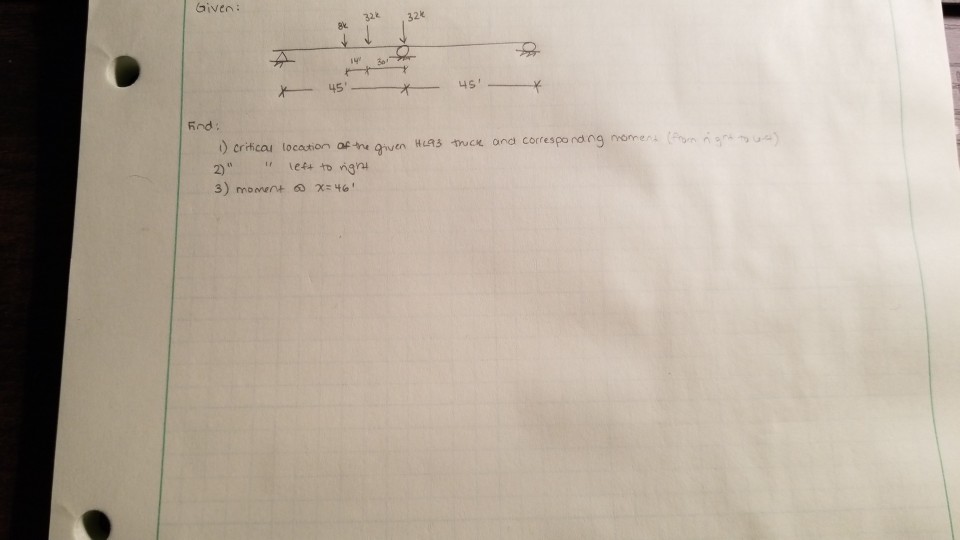 Given:
8k 32k 32k
14' 30'
45' 45'
Find:
1) critical location of the given HL93 truck and corresponding moment (from right to left)
2) " " left to right
3) moment @ x=46'